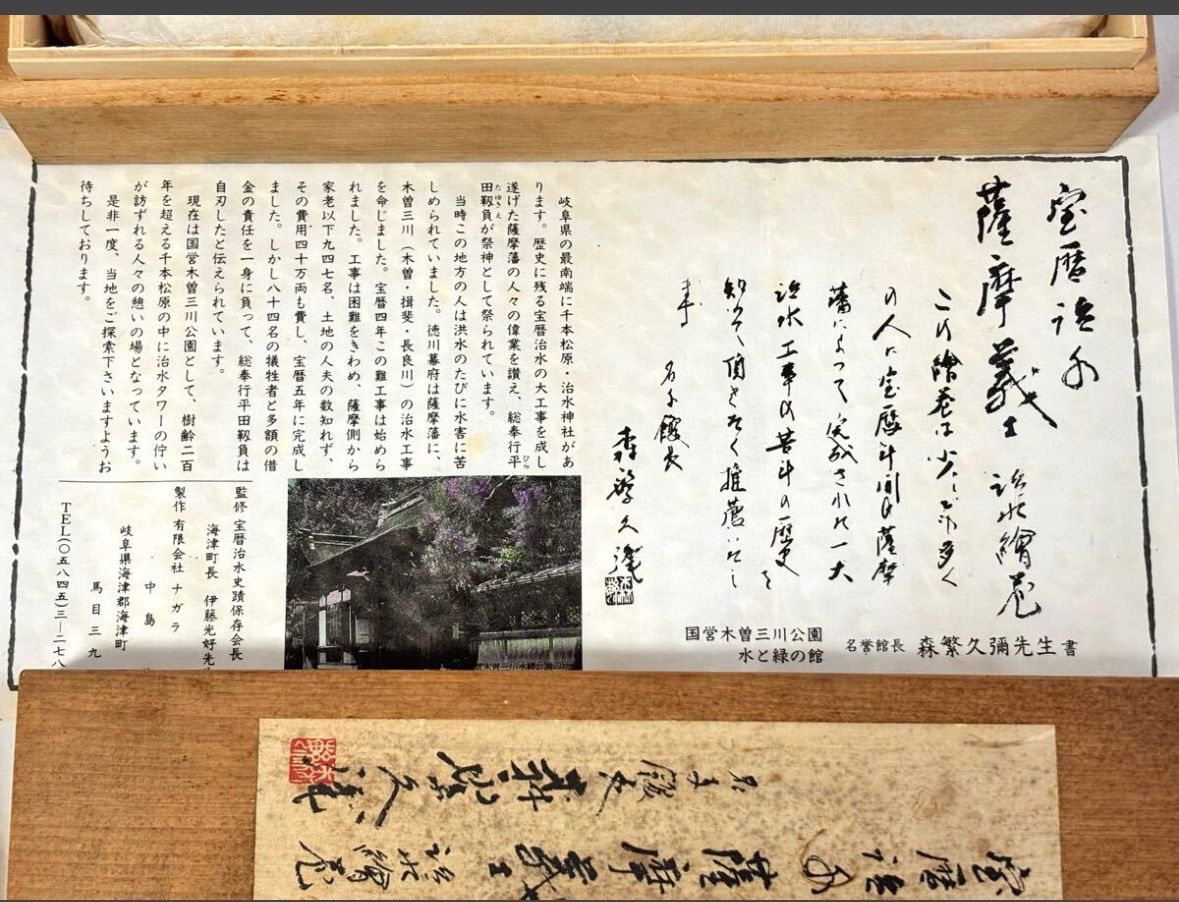 宝暦治水
薩摩義士 治水繪巻
この繪巻は少しでも多く
の人に宝暦年間の薩摩
藩によって完成された一大
治水工事の苦斗の歴史を
知って頂きたく推薦いたし
ます
名誉館長
森繁久彌
国営木曽三川公園
水と緑の館
名誉館長 森繁久彌先生 書
岐阜県の最南端に千本松原・治水神社があ
ります。歴史に残る宝暦治水の大工事を成し
遂げた薩摩藩の人々の偉業を讃え、総奉行平
田靱負が祭神として祭られています。
当時この地方の人は洪水のたびに水害に苦
しめられていました。徳川幕府は薩摩藩に、
木曽三川(木曽・揖斐・長良川)の治水工事
を命じました。宝暦四年この難工事は始めら
れました。工事は困難をきわめ、薩摩側から
家老以下九四七名、土地の人夫の数知れず、
その費用四十万両も費し、宝暦五年に完成し
ました。しかし八十四名の犠牲者と多額の借
金の責任を一身に負って、総奉行平田靱負は
自刃したと伝えられています。
現在は国営木曽三川公園として、樹齢二百
年を超える千本松原の中に治水タワーの佇い
が訪ずれる人々の憩いの場となっています。
是非一度、当地をご探索下さいますようお
待ちしております。
監修 宝暦治水史蹟保存会長
海津町長 伊藤光好先生
製作 有限会社 ナガラ
中島
岐阜県海津郡海津町
馬目三九
TEL(〇五八四五)三―二七八
宝暦治水
薩摩義士 治水繪巻
名誉館長 森繁久彌